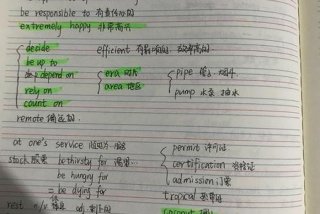 be responsible to 有责任心的
extremely happy 非常高兴
decide
be up to
depend on
rely on
count on
efficient 有效的
era 时代
area 地区
pipe 管
pump 水泵 抽水
remote 偏远的
at one's service
stock 股票
be thirsty for 渴望
be hungry for
= be dying for
permit 许可证
certification 资格证
admission 门票
tropical 热带的
rest n/v 休息 adj. 剩下的
coconut